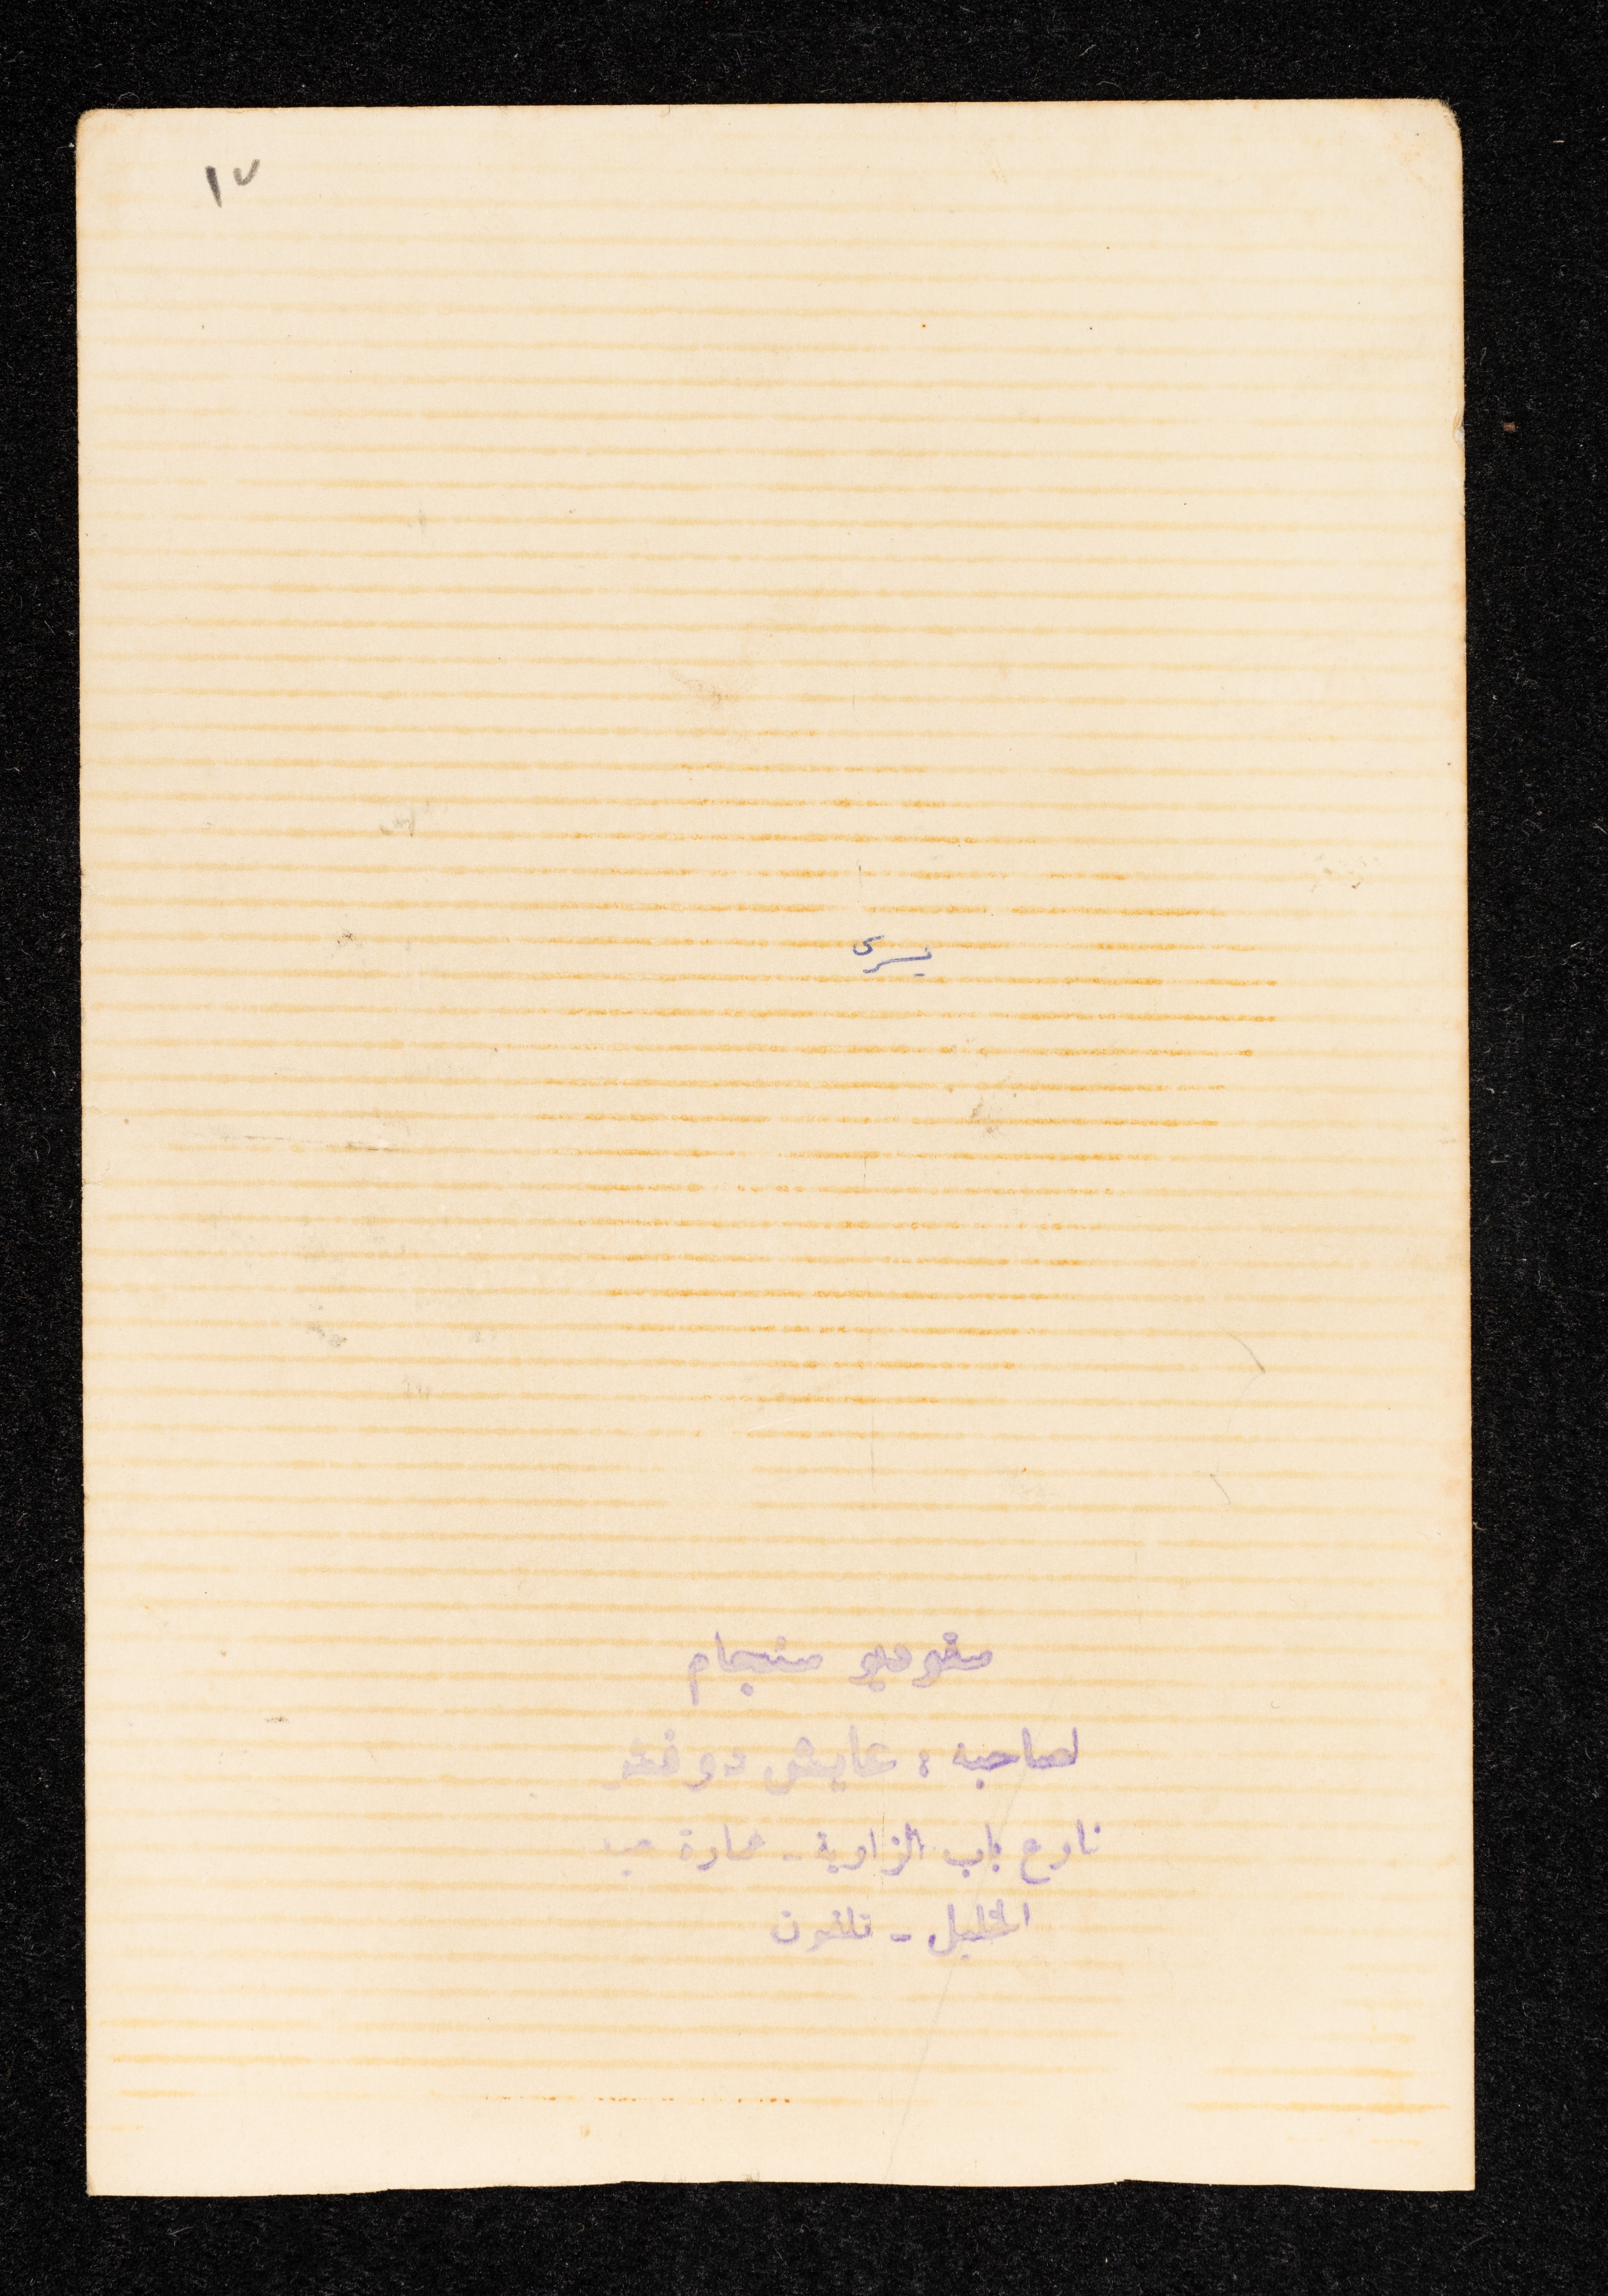 ١٧
يسرى
ستوديو منجام
لصاحبه : عايش دوفش
شارع باب الزاوية - عمارة
الخليل - تلفون